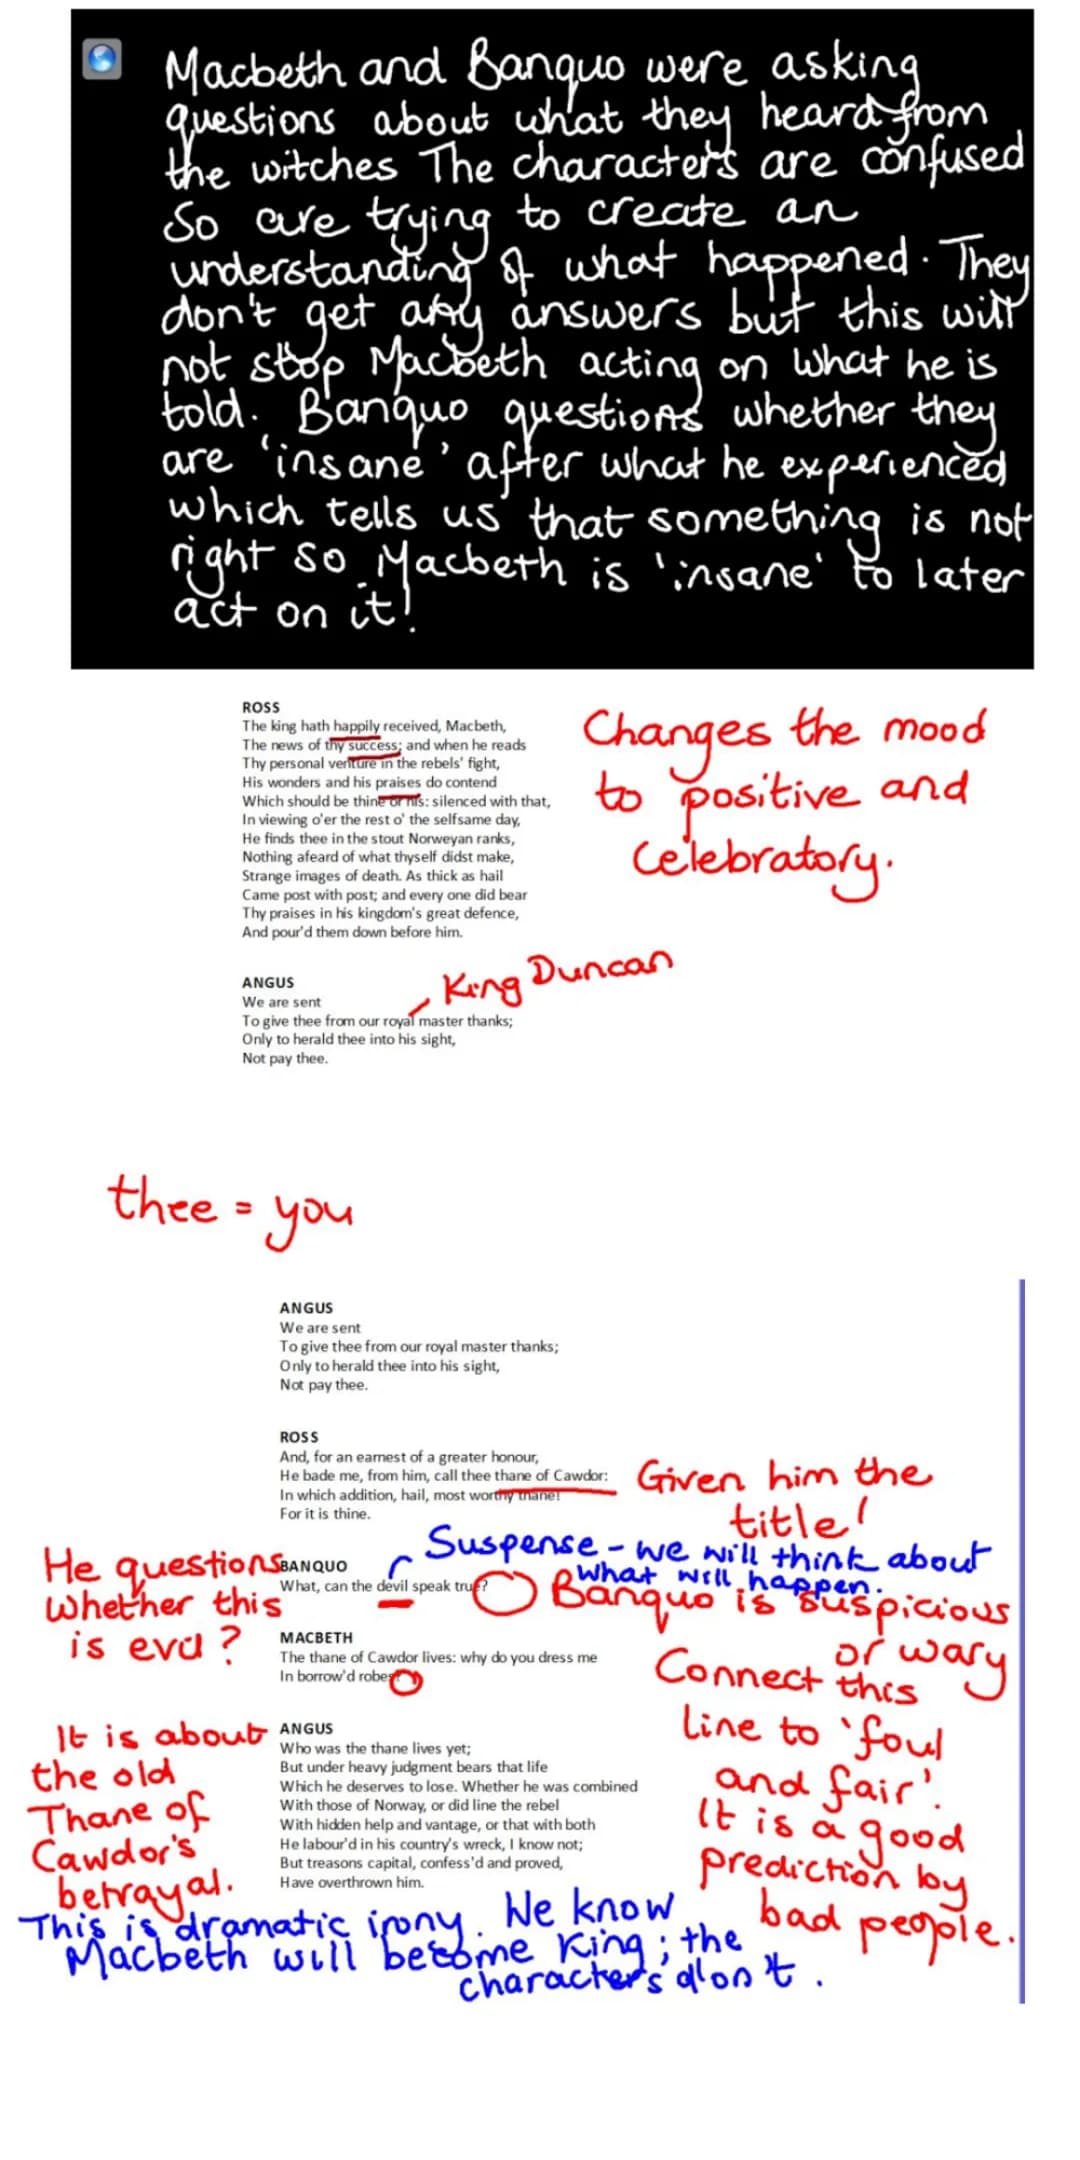 Macbeth and Banquo were asking
questions about what they heard from
the witches The characters are confused
so are trying to create an
understanding of what happened. They
don't get any answers but this will
not stop Macbeth acting on what he is
told. Banquo questions whether they
are 'insane' after what he experienced
which tells us that something is not
right so Macbeth is 'insane' to later
act on it!
ROSS
The king hath happily received, Macbeth,
The news of thy success; and when he reads
Thy personal venture in the rebels' fight,
His wonders and his praises do contend
Which should be thine or his: silenced with that,
In viewing o'er the rest o' the selfsame day,
He finds thee in the stout Norweyan ranks,
Nothing afeard of what thyself didst make,
Strange images of death. As thick as hail
Came post with post; and every one did bear
Thy praises in his kingdom's great defence,
And pour'd them down before him.
Changes the mood
to positive and
celebratory.
King Duncan
ANGUS
We are sent
To give thee from our royal master thanks;
Only to herald thee into his sight,
Not pay thee.
thee = you
ANGUS
We are sent
To give thee from our royal master thanks;
Only to herald thee into his sight,
Not pay thee.
ROSS
And, for an earnest of a greater honour,
He bade me, from him, call thee thane of Cawdor:
In which addition, hail, most worthy thane!
For it is thine.
Given him the
title!
Suspense - we will think about
what will happen.
He questions
whether this
is evil?
BANQUO
What, can the devil speak true?
Banquo is suspicious
or wary
MACBETH
The thane of Cawdor lives: why do you dress me
In borrow'd robes?
Connect this
line to 'foul
and fair'.
It is a good
prediction by
bad people.
It is about
the old
Thane of
Cawdor's
betrayal.
ANGUS
Who was the thane lives yet;
But under heavy judgment bears that life
Which he deserves to lose. Whether he was combined
With those of Norway, or did line the rebel
With hidden help and vantage, or that with both
He labour'd in his country's wreck, I know not;
But treasons capital, confess'd and proved,
Have overthrown him.
This is dramatic irony. We know
Macbeth will become King; the
characters don't.